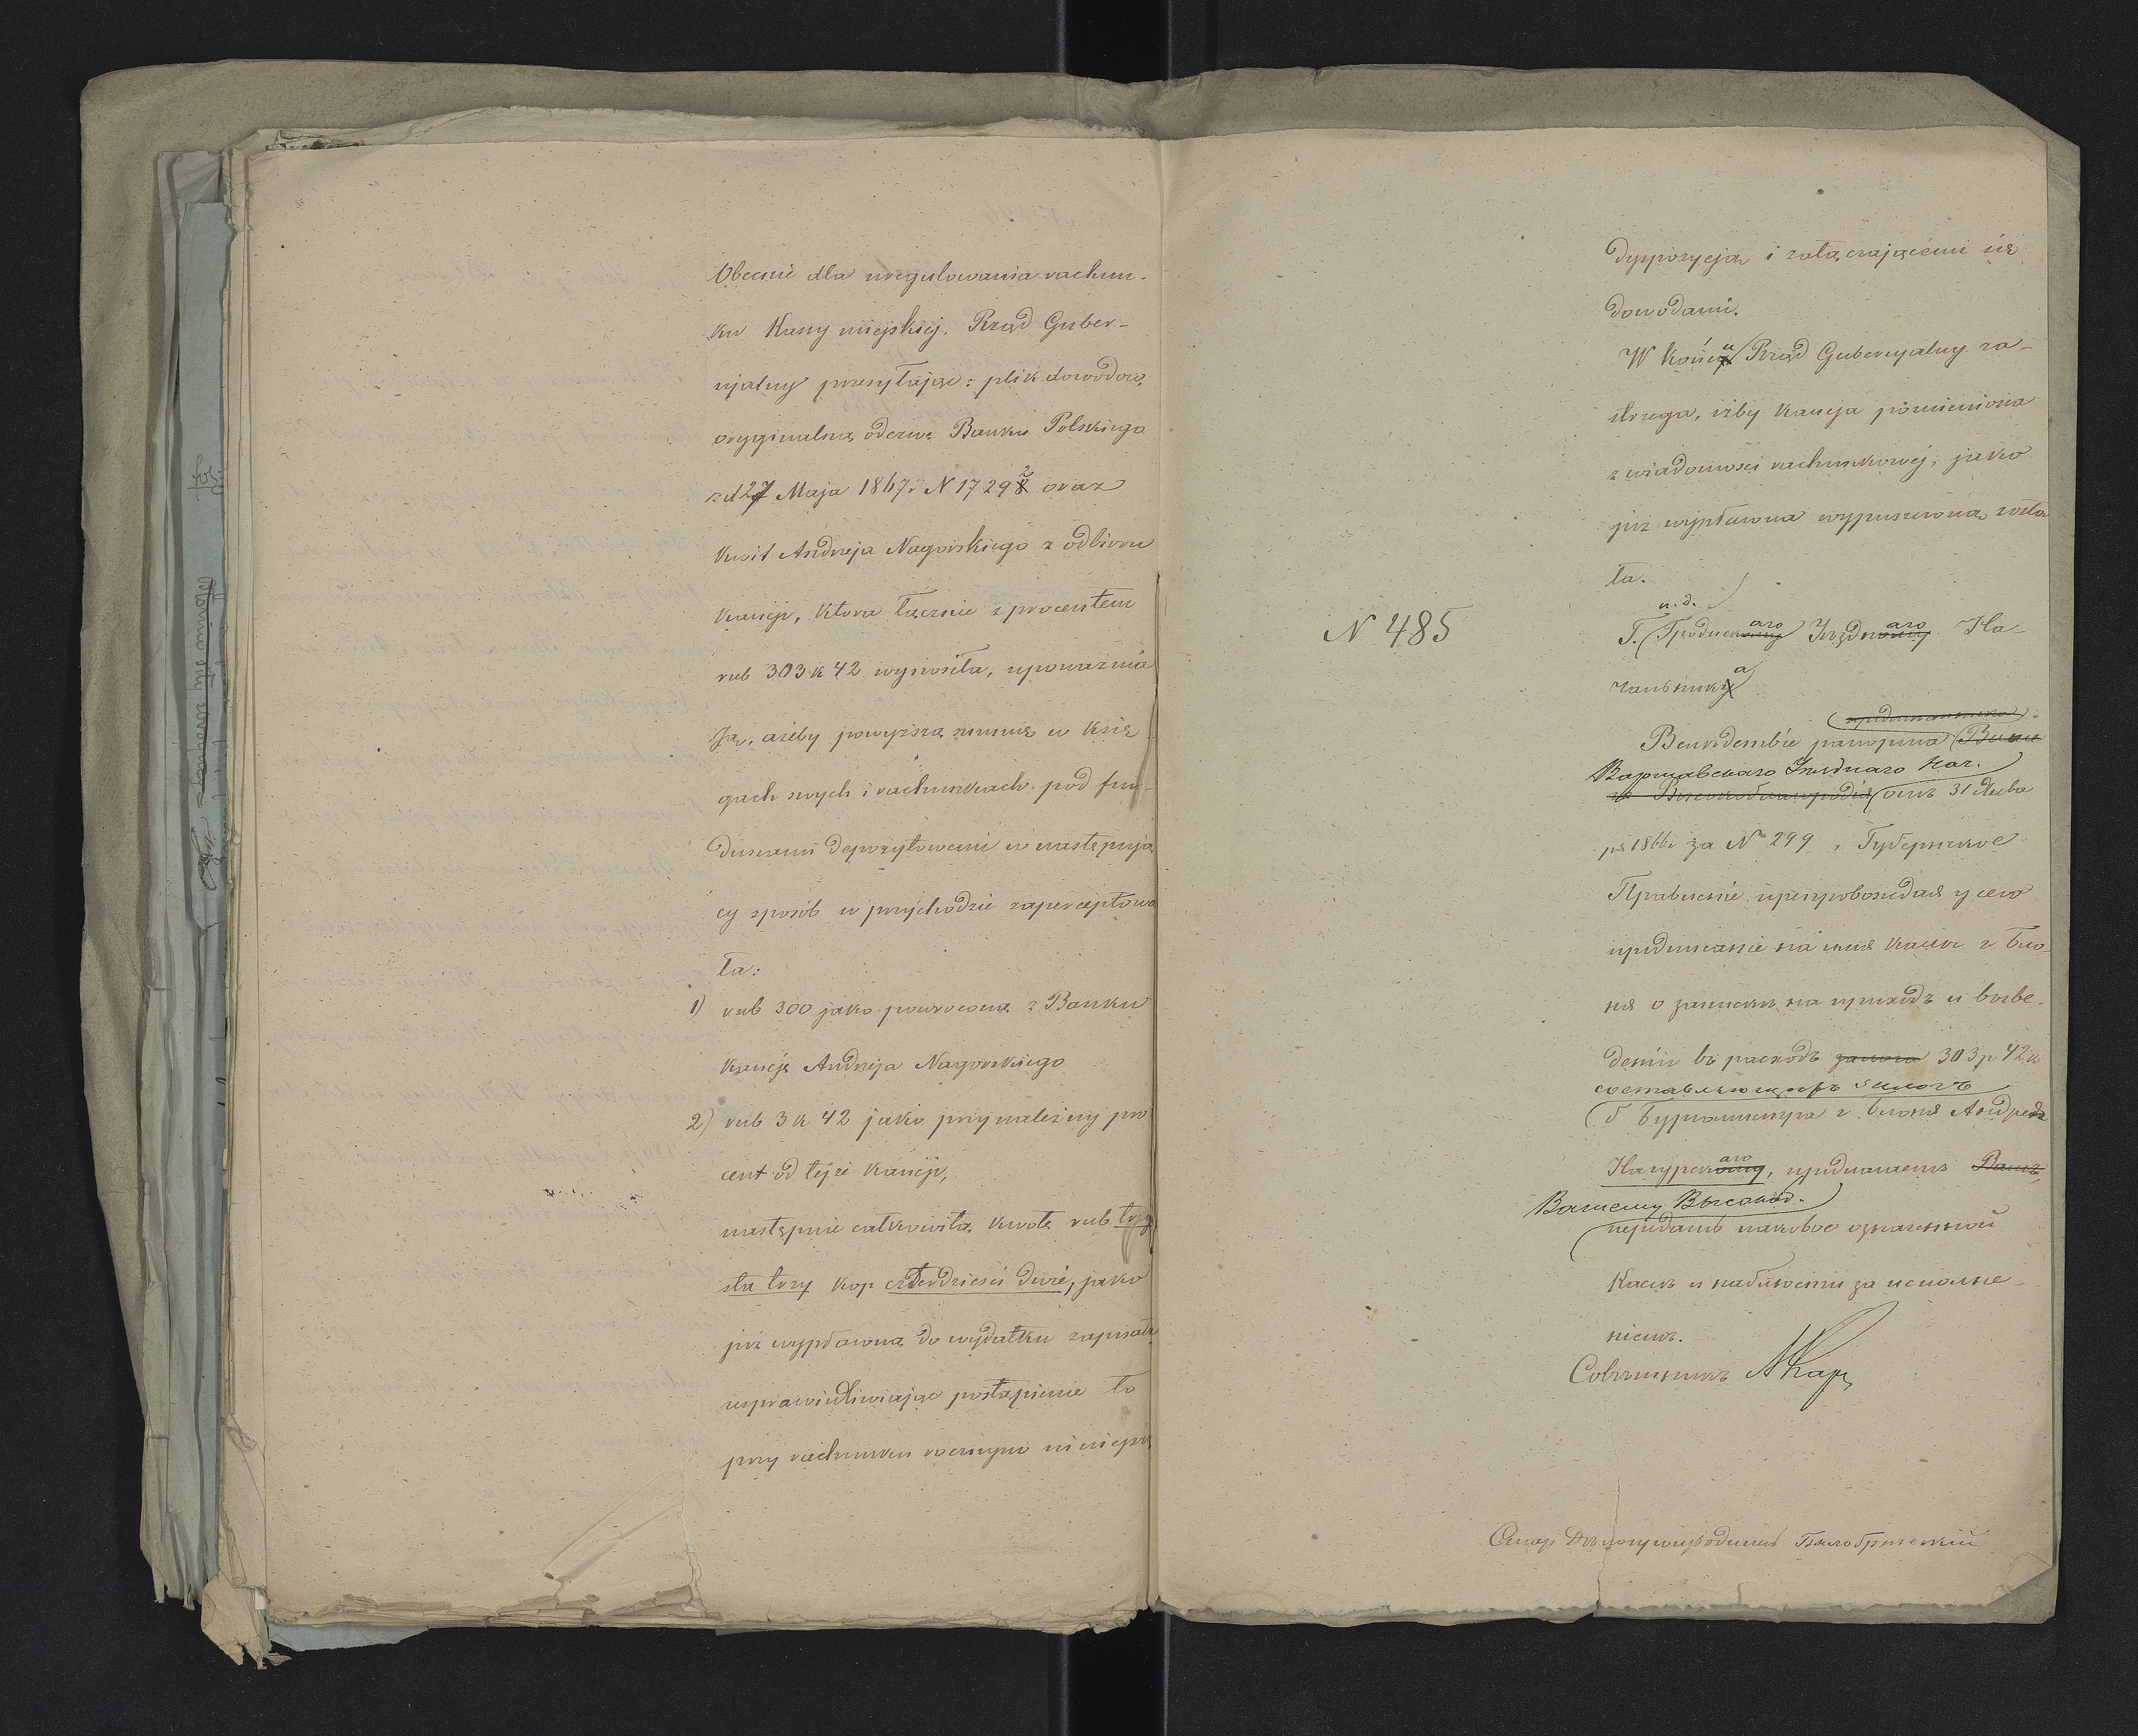 Obecnie dla uregulowania rachun-
ku Kassy miejskiej. Rząd Guber-
njalny przesyłając: plik dowodow,
oryginalną odezwę Banku Polskiego
z d 27 Maja 1867 r N 17292 oraz
kwit Andrzeja Nagórskiego z odbioru
kaucji, która łącznie z procentem
rub 303 k 42 wynosiła, upoważnia
Ją, ażeby powyższą summę w księ
gach swych i rachunkach pod fun-
duszami depozytowemi w następują
cy sposób w przychodzie zapercepto­wa
ła:
1) rub 300 jako powróconą z Banku
kaucję Andrzeja Nagorskiego
2) rub 3 k 42 jako przynależny pro
cent od tejże kaucji,
następnie całkowitą kwotę rub trzy
sta trzy kop czterdzieści dwie, jako
już wypłaconą do wydatku zapisała
usprawiedliwiając postąpienie to
przy rachunku rocznym niniejszą
dyspozycją i załączającemi się
dowodami.
W końcu Rząd Gubernjalny za-
strzega, iżby kaucja pomieniona
z wiadomości rachunkowej, jako
już wypłacona wypuszczoną zosta
ła.
N 485
и. д.
Г. Гродискаго Уѣзднаго На-
чальника
Вслѣдствіе рапорта
Варшавскаго Уѣзднаго Нач.
Высокоблагородія отъ 31 Янва
ря 1866 г за № 299, Губернское
Правленіе препровождая у сего
предписаніе на имя кассы г Бло-
ня о запискѣ на приходъ и выве-
деніи въ расходъ залога 303 р 42 к
составляющихъ залогъ
б Бургомистра г. Блоня Андрея
Нагурскаго, предписываетъ Вамъ,
Вашему Высокоб.
передать таковое означенной
Кассѣ и наблюсти за исполне-
ніемъ.
Совѣтникъ
Стар Дѣлопроизводитель Бялобржескій